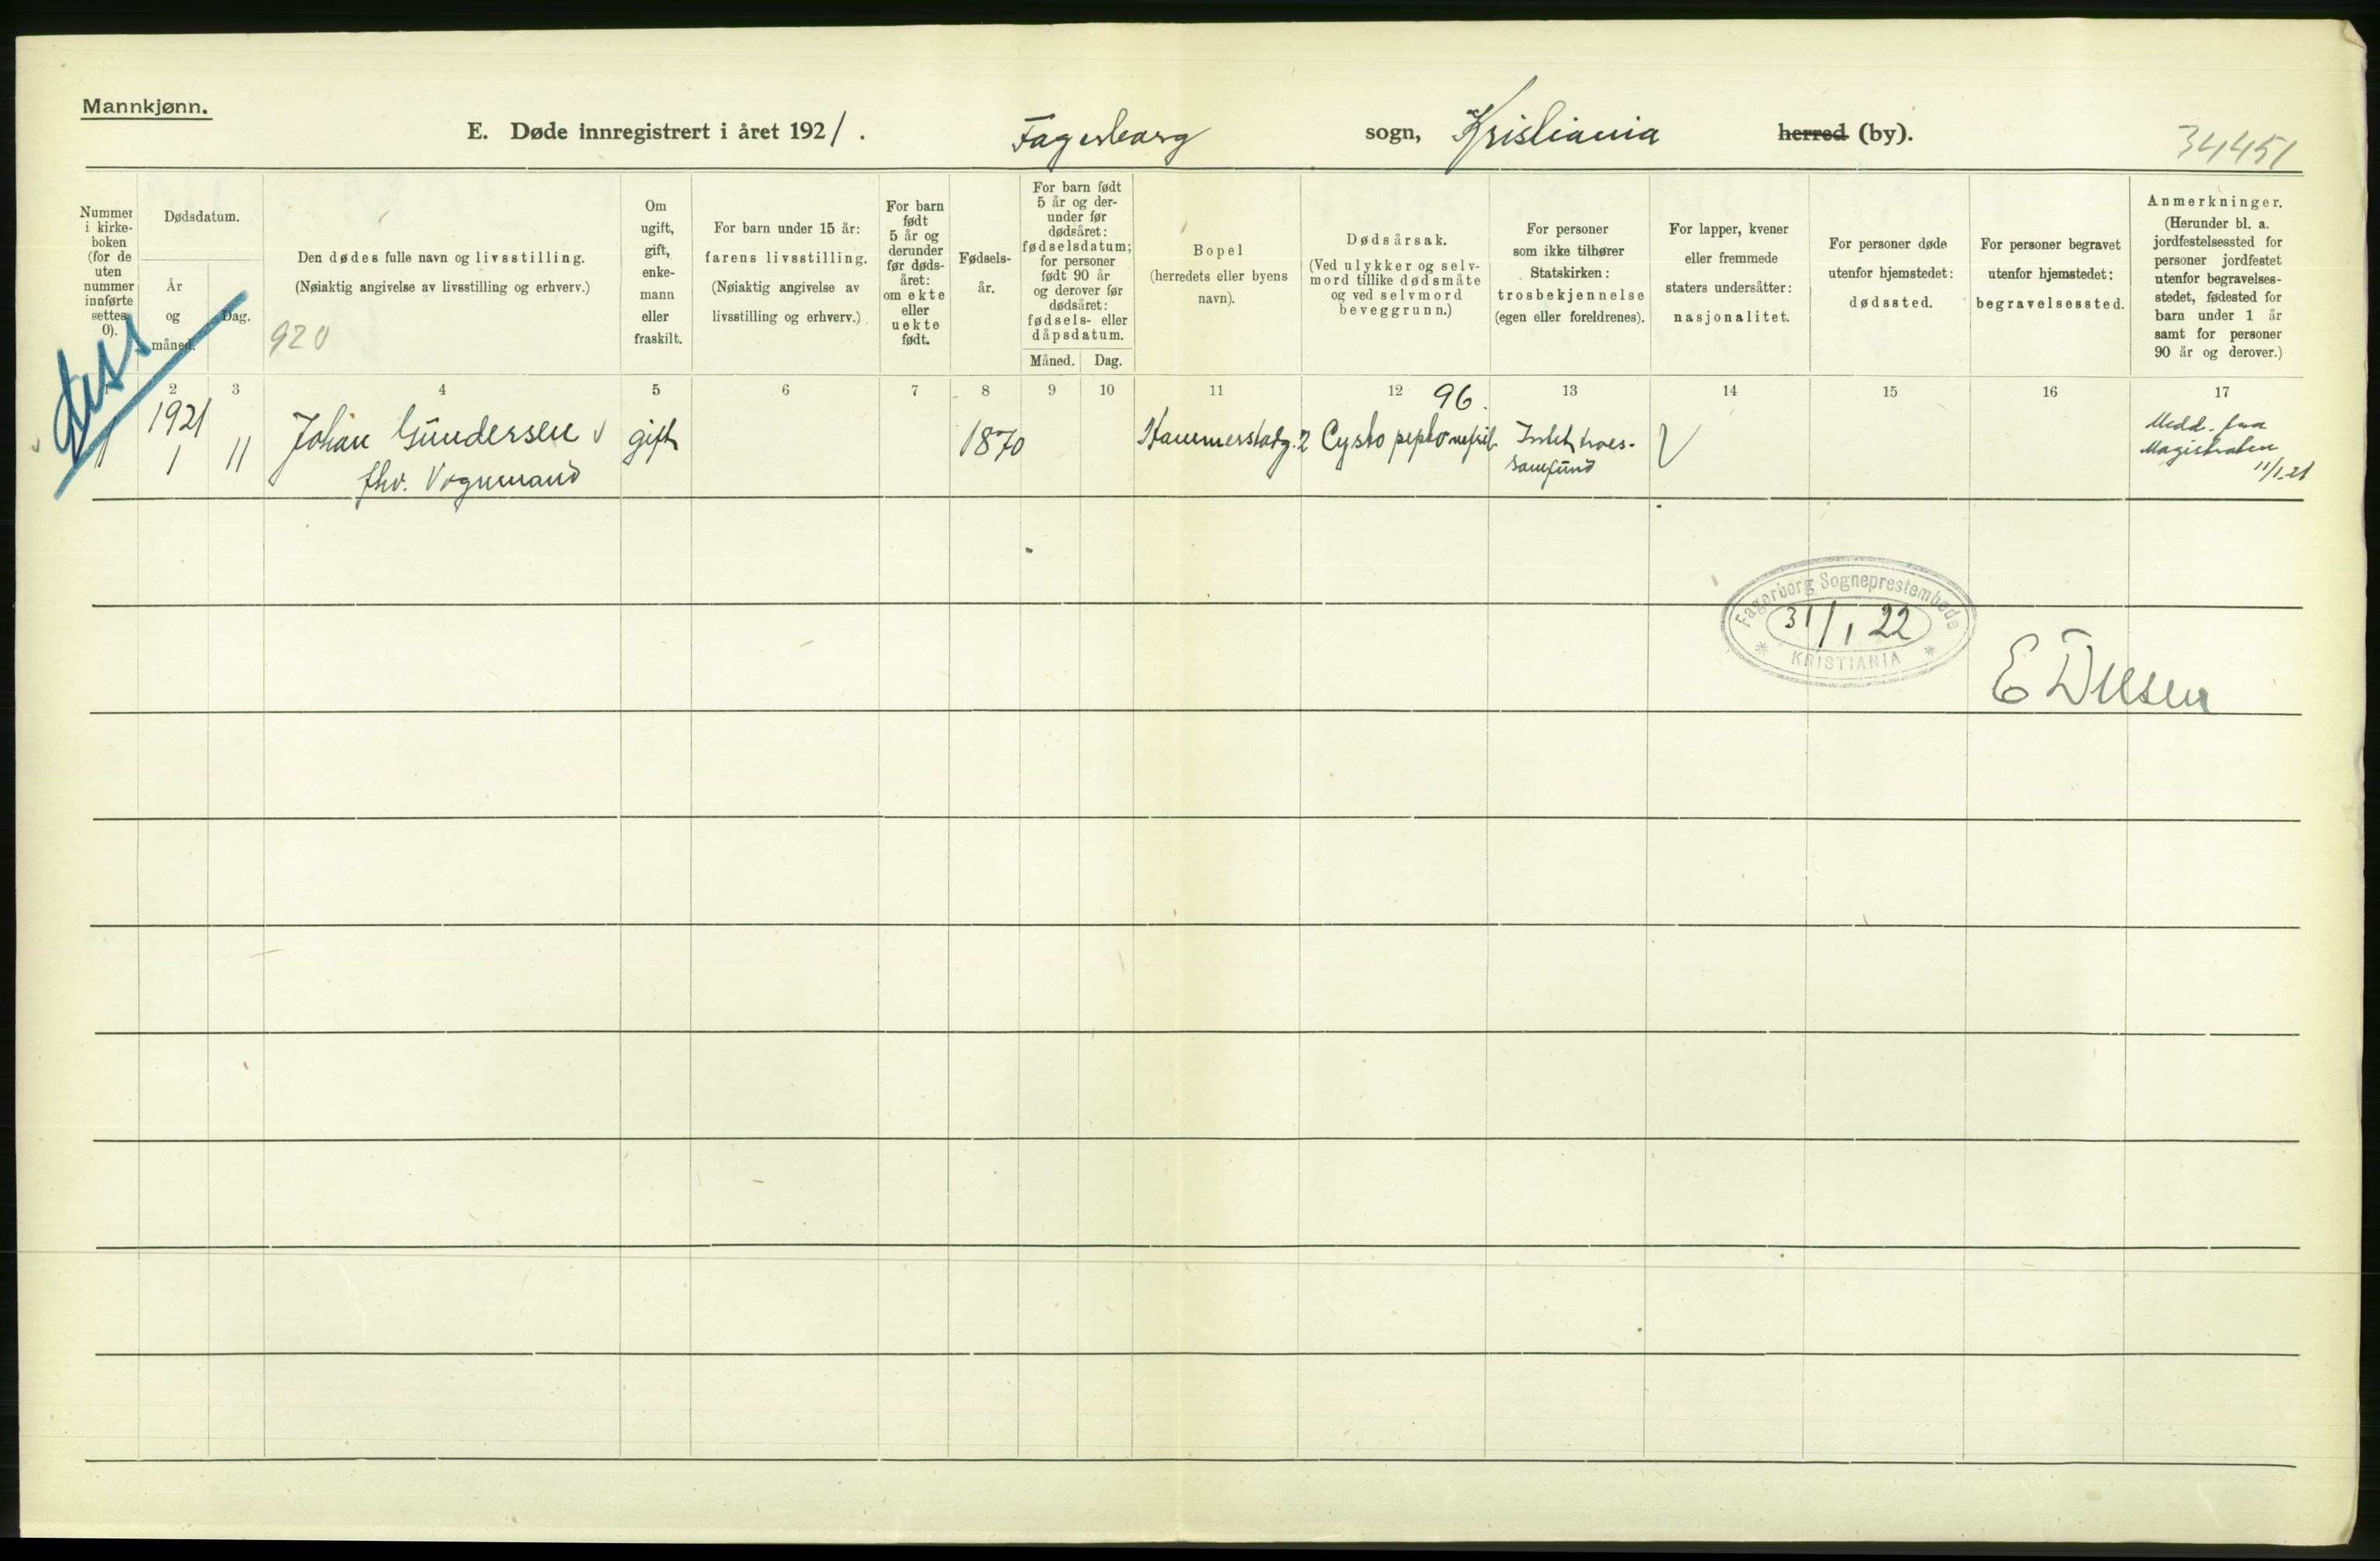 Mannkjønn.
E. Døde innregistrert i året 1921. Fagerborg sogn, Kristiania herred (by).
34451
Nummer
i kirke-
boken
(for de
uten
nummer
innførte
settes
0).
Dødsdatum.
År
og
måned.
Dag.
Den dødes fulle navn og livsstilling.
(Nøiaktig angivelse av livsstilling og erhverv.)
920
Om
ugift,
gift,
enke-
mann
eller
fraskilt.
For barn under 15 år:
farens livsstilling.
(Nøiaktig angivelse av
livsstilling og erhverv.)
For barn
født
5 år og
derunder
før døds-
året:
om ekte
eller
uekte
født.
Fødsels-
år.
For barn født
5 år og der-
under før
dødsåret:
fødselsdatum;
for personer
født 90 år
og derover før
dødsåret:
fødsels- eller
dåpsdatum.
Måned. Dag.
Bopel
(herredets eller byens
navn).
Dødsårsak.
(Ved ulykker og selv-
mord tillike dødsmåte
og ved selvmord
beveggrunn.)
For personer
som ikke tilhører
Statskirken:
trosbekjennelse
(egen eller foreldrenes).
For lapper, kvener
eller fremmede
staters undersåtter:
nasjonalitet.
For personer døde
utenfor hjemstedet:
dødssted.
For personer begravet
utenfor hjemstedet:
begravelsessted.
Anmerkninger.
(Herunder bl. a.
jordfestelsessted for
personer jordfestet
utenfor begravelses-
stedet, fødested for
barn under 1 år
samt for personer
90 år og derover.)
1 2 3 4 5 6 7 8 9 10 11 12 13 14 15 16 17
96.
1 1921 1 11 Johan Gundersen gift 1870 Hammerstadg. 2 Cysto Intet troes-
samfund
fhv. Vognmand
Medd. fra
Magistraten
11/1-21
Fagerborg Sogneprestembede
31/1 22
KRISTIANIA